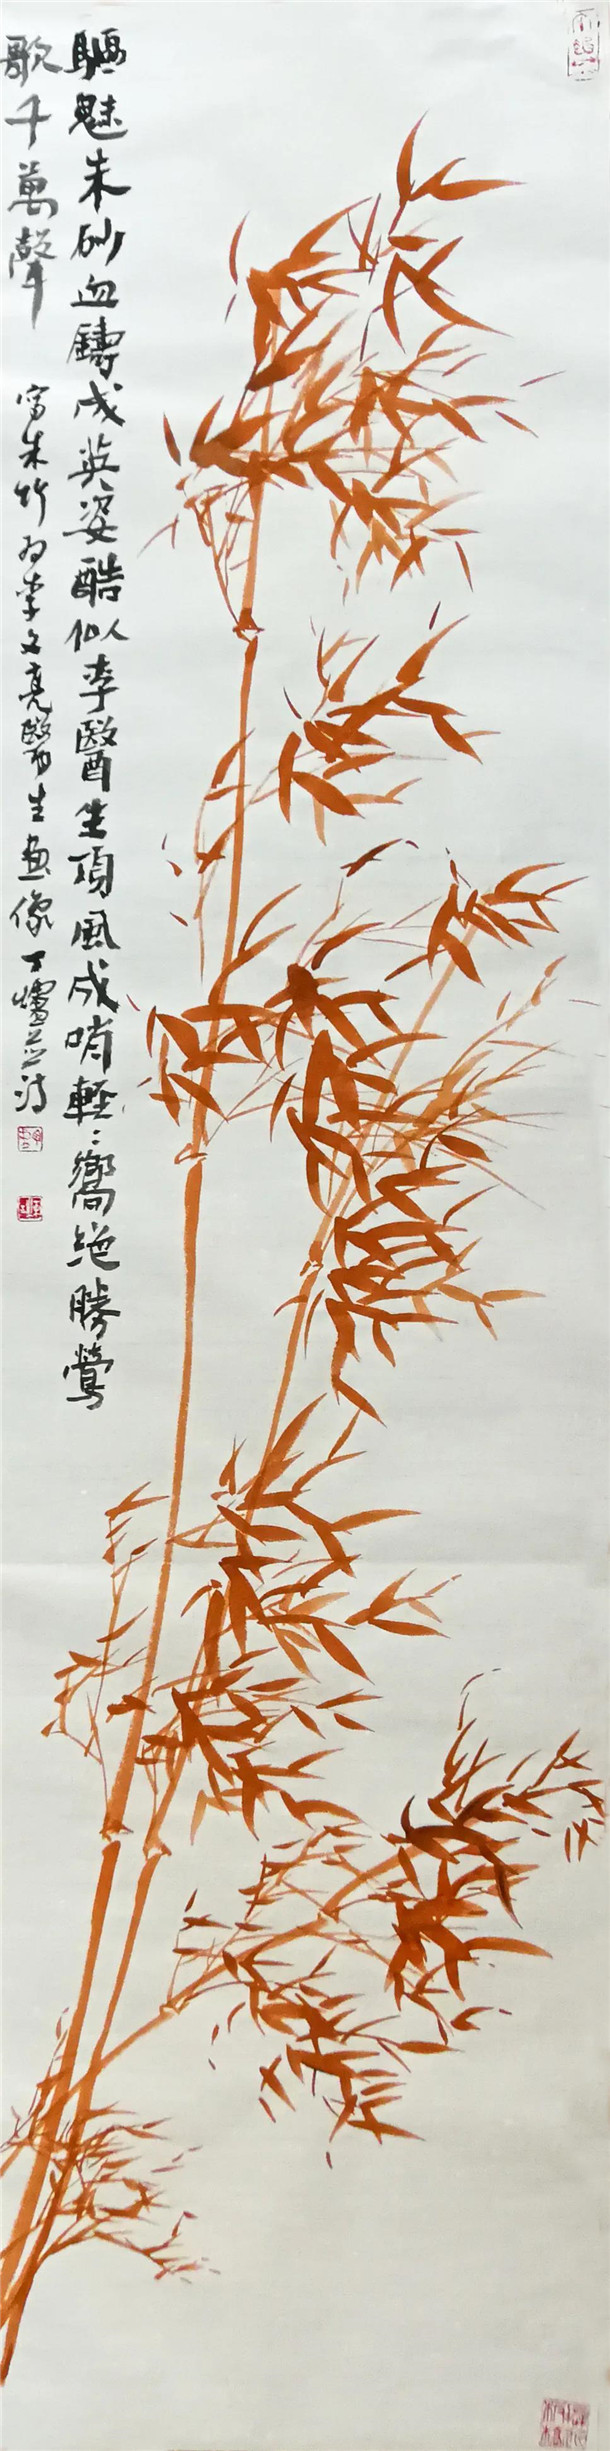 驅魅朱砂血鑄成英姿酷似李醫生頂風成哨輕〻嚮絕勝鶯
歌千萬聲
寫朱竹為李文亮醫生畫像丁爐並诗